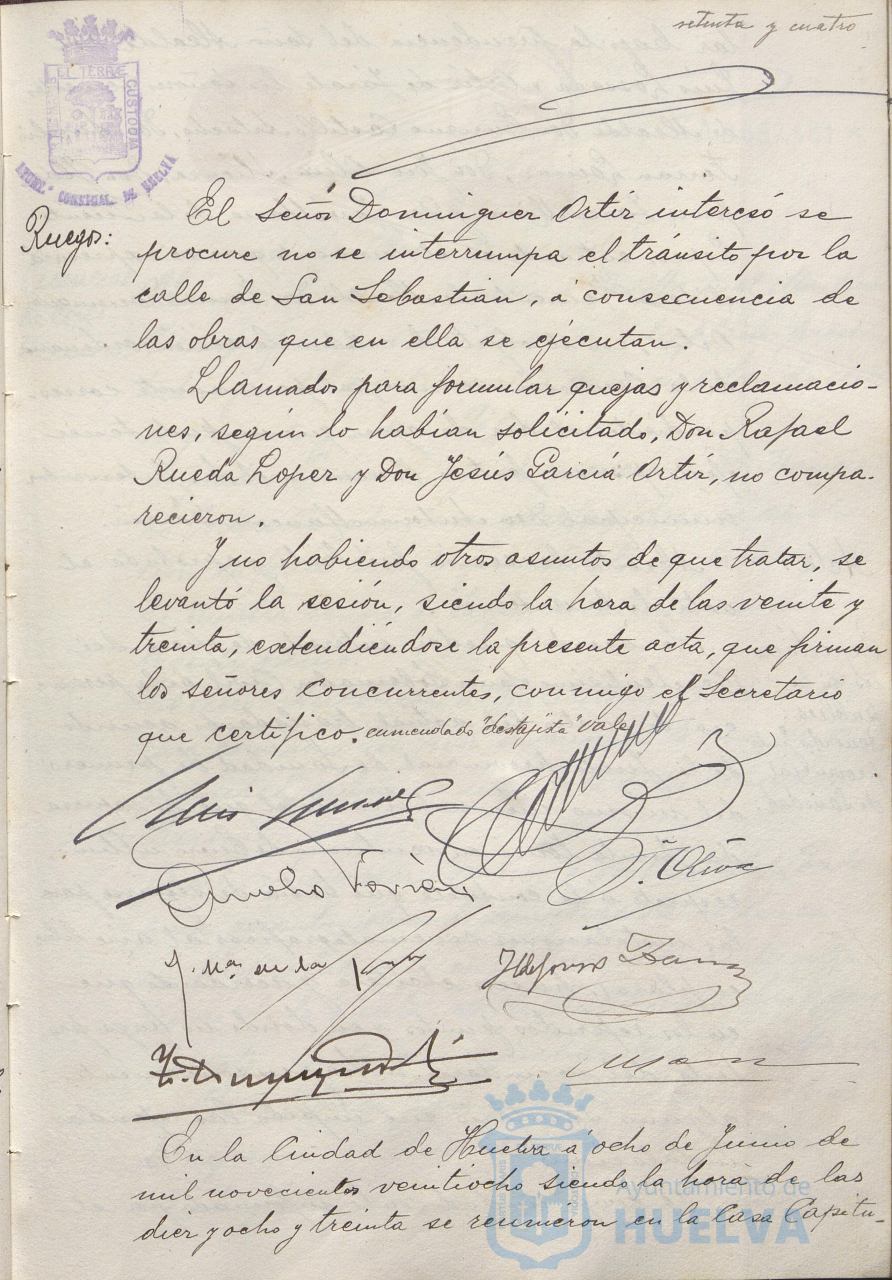 setenta y cuatro
EL TERRE
CUSTODIA
AYUNT.º CONSTGAL. DE HUELVA
Ruegos:
El Señor Dominguez Ortiz interesó se
procure no se interrumpa el tránsito por la
calle de San Sebastian, á consecuencia de
las obras que en ella se ejecutan.
Llamados para formular quejas y reclamacio-
nes, según lo habian solicitado, Don Rafael
Rueda Lopez y Don Jesús Garcia Ortiz, no compa-
recieron.
Y no habiendo otros asuntos de que tratar, se
levantó la sesión, siendo la hora de las veinte y
treinta, extendiéndose la presente acta, que firman
los señores concurrentes, conmigo el Secretario
que certifico. enmendado "destajista" vale
J. Oliva
J. Mª de la
Ildefonso
En la Ciudad de Huelva á ocho de Junio de
mil novecientos veintiocho siendo la hora de las
diez y ocho y treinta se reunieron en la Casa Capitu-
Ayuntamiento de
HUELVA